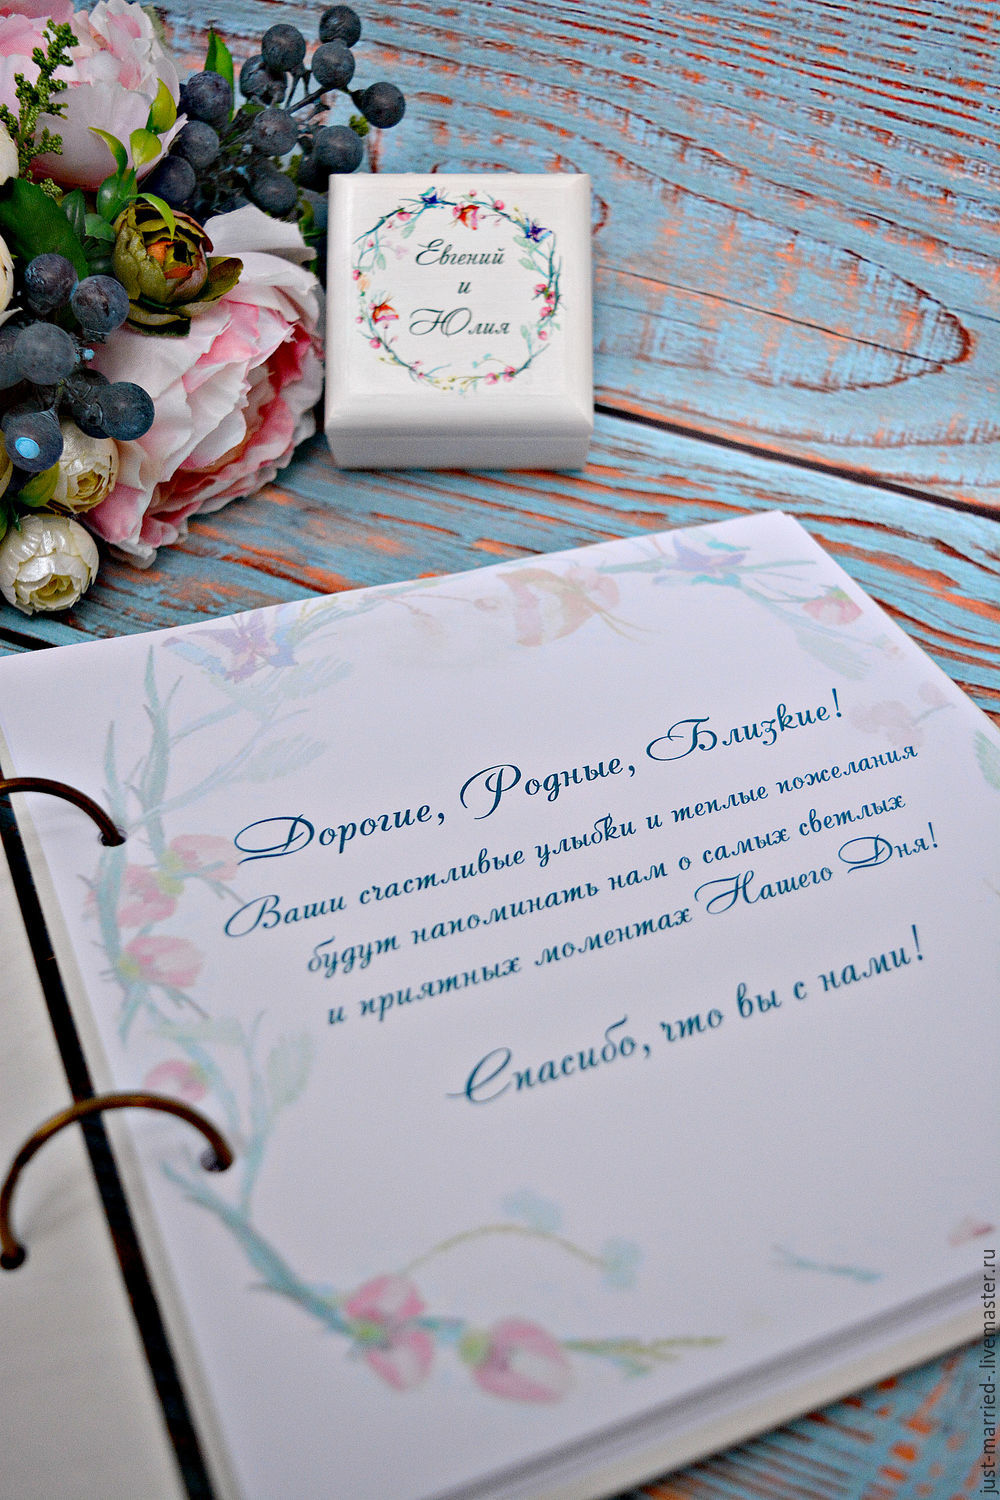 Евгений
и
Юлия
Дорогие, Родные, Близкие!
Ваши счастливые улыбки и теплые пожелания
будут напоминать нам о самых светлых
и приятных моментах Нашего Дня!
Спасибо, что вы с нами!
just-married-.livemaster.ru